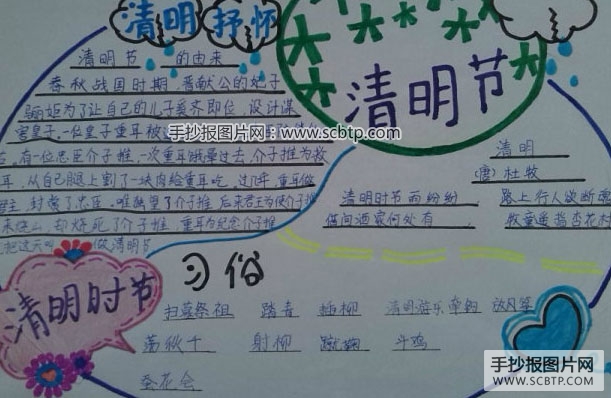 清明 抒怀
清明节 的由来
春秋战国时期,晋献公的妃子
骊姬为了让自己的儿子奚齐即位,设计谋
害皇子,一位皇子重耳被
有一位忠臣介子推,一次重耳饿晕过去,介子推为救
耳,从自己腿上割了一块肉给重耳吃,过几年,重耳做
君主,封赏了忠臣,唯独忘了介子推,后来君王为使介子推
却烧死了介子推,重耳为纪念介子推
把这天叫 做清明节
清明节
清明
(唐)杜牧
清明时节雨纷纷 路上行人欲断魂
借问酒家何处有 牧童遥指杏花村
清明时节
习俗
扫墓祭祖 踏青 插柳 清明游乐 牵钩 放风筝
荡秋千 射柳 蹴鞠 斗鸡
蚕花会
手抄报图片网:www.scbtp.com
手抄报图片网
WWW.SCBTP.COM